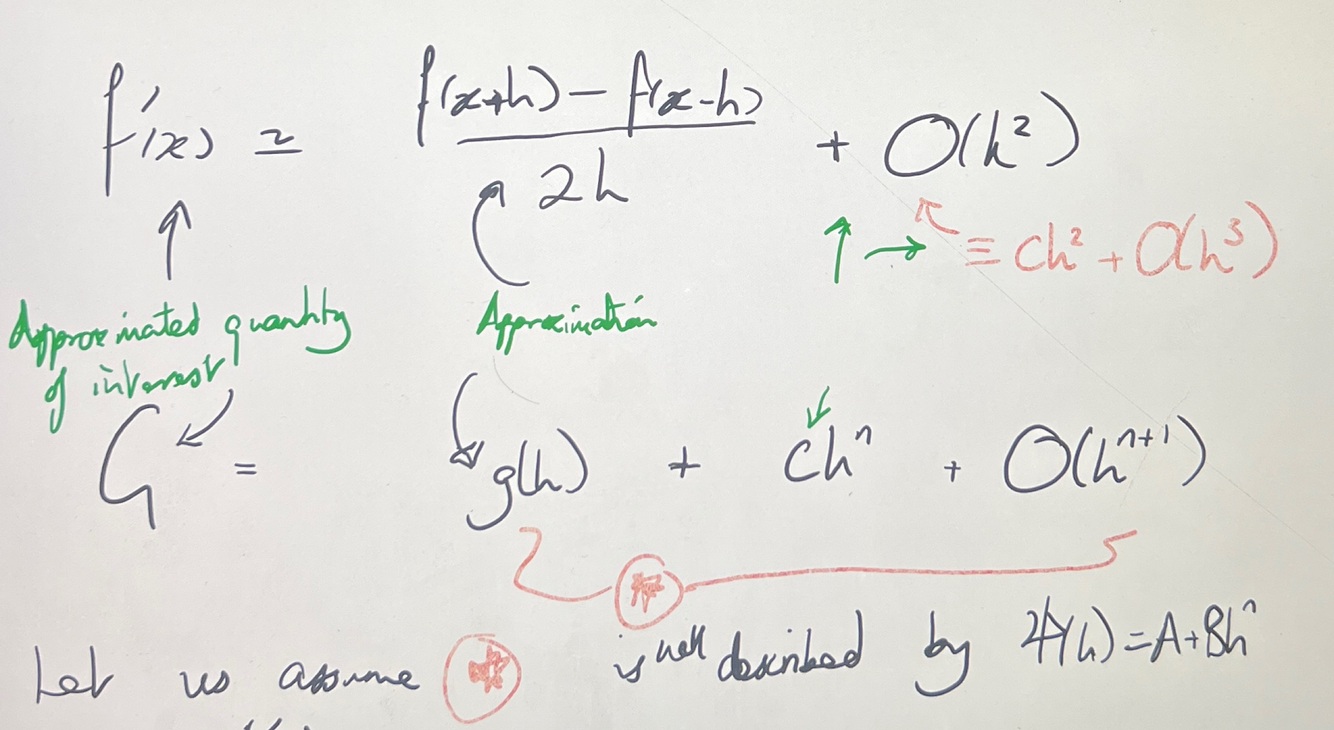 f'(x) ≃ f(x+h) - f(x-h) / 2h + O(h²)
≡ ch² + O(h³)
Approximated quantity
of interest
Approximation
G = g(h) + ch^n + O(h^{n+1})
*
Let us assume * is well described by (h) = A + Bh^n